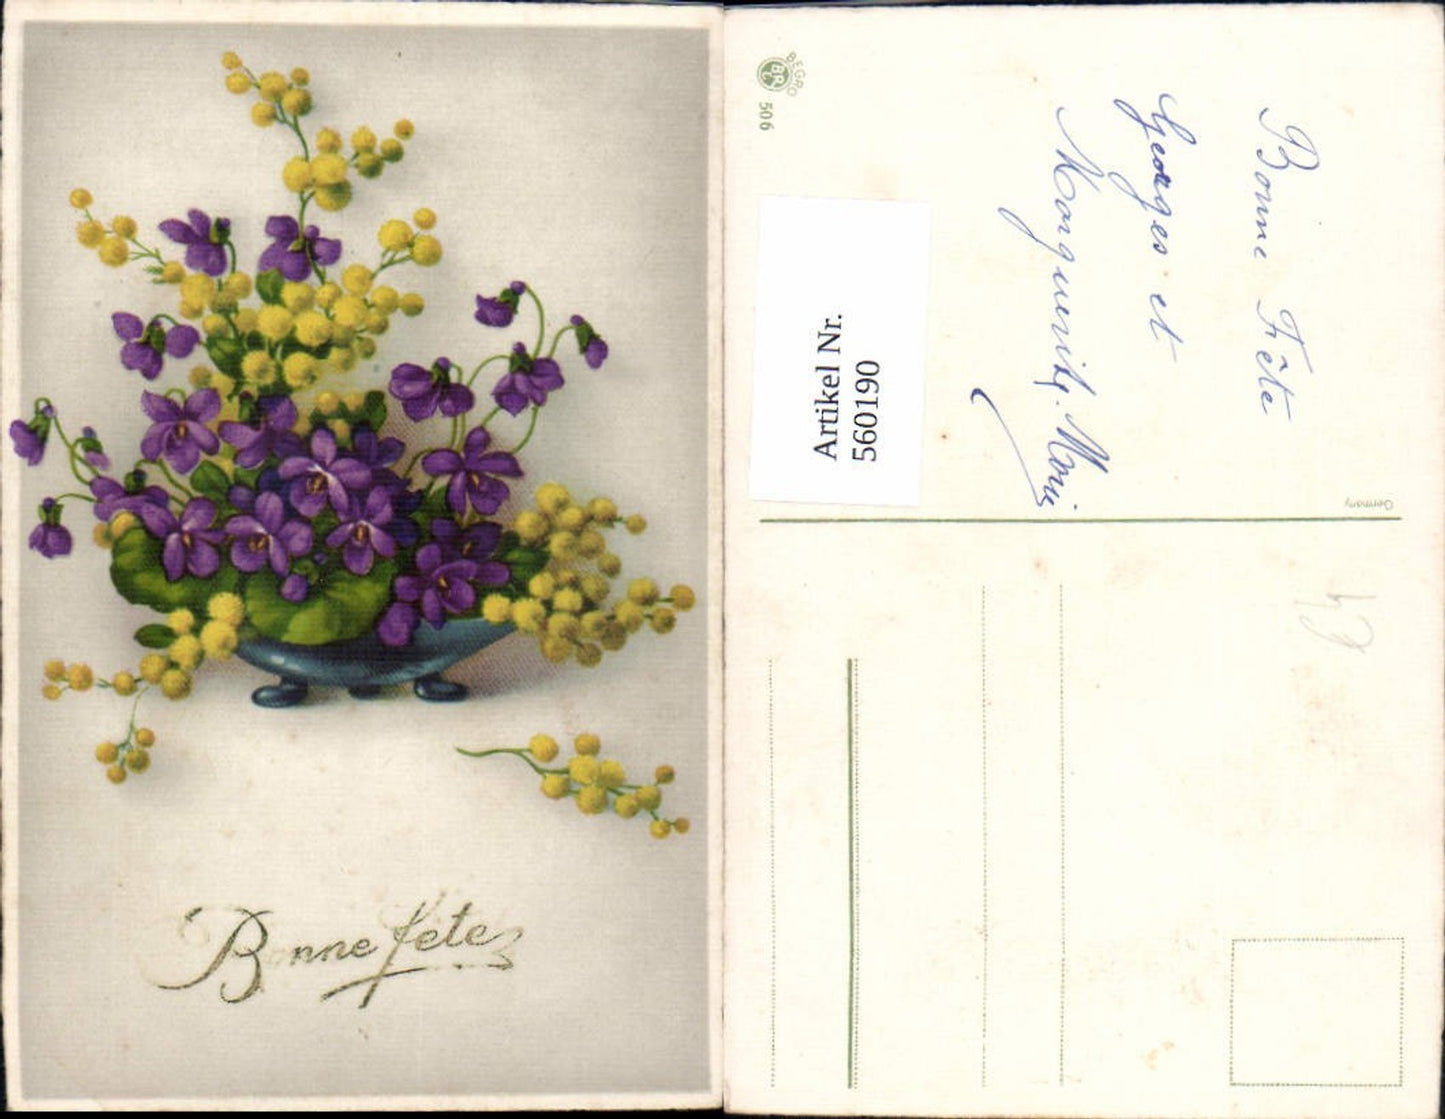 Bonne fete
BEGRO
BR
506
Artikel Nr.
560190
Bonne Fête
Georges et
Marguerite. Marie
Germany